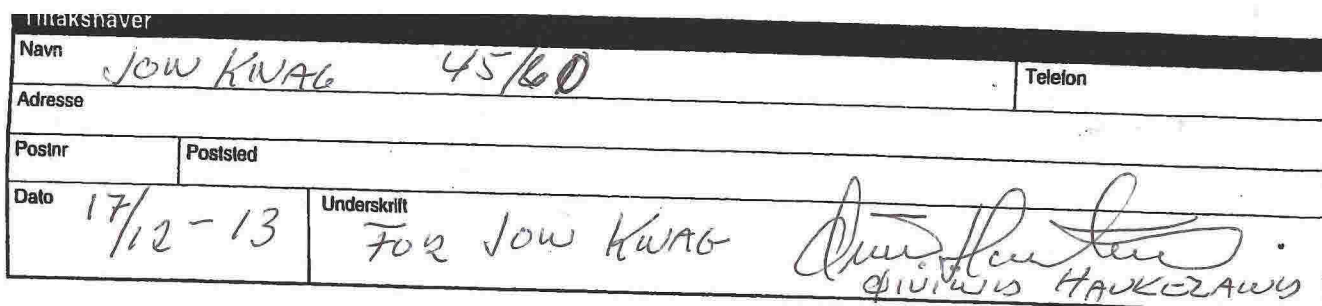 Tiltakshaver
Navn JOW KWAG 45/60
Telefon
Adresse
Postnr Poststed
Dato 17/12-13
Underskrift FOR JOW KWAG